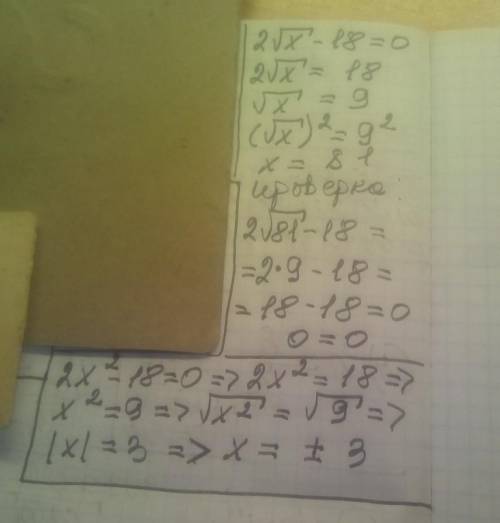 2√x - 18 = 0
2√x = 18
√x = 9
(√x)² = 9²
x = 81
проверка:
2√81 - 18 =
= 2·9 - 18 =
= 18 - 18 = 0
0 = 0
2x² - 18 = 0 => 2x² = 18 =>
x² = 9 => √x² = √9 =>
|x| = 3 => x = ± 3